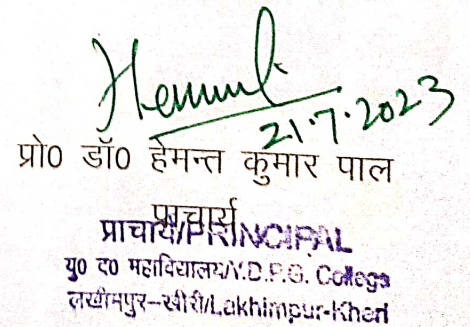 Hemant
21.7.2023
प्रो0 डॉ0 हेमन्त कुमार पाल
प्राचार्य
प्राचार्य/PRINCIPAL
यु0 द0 महाविद्यालय/Y.D.P.G. College
लखीमपुर-खीरी/Lakhimpur-Kheri